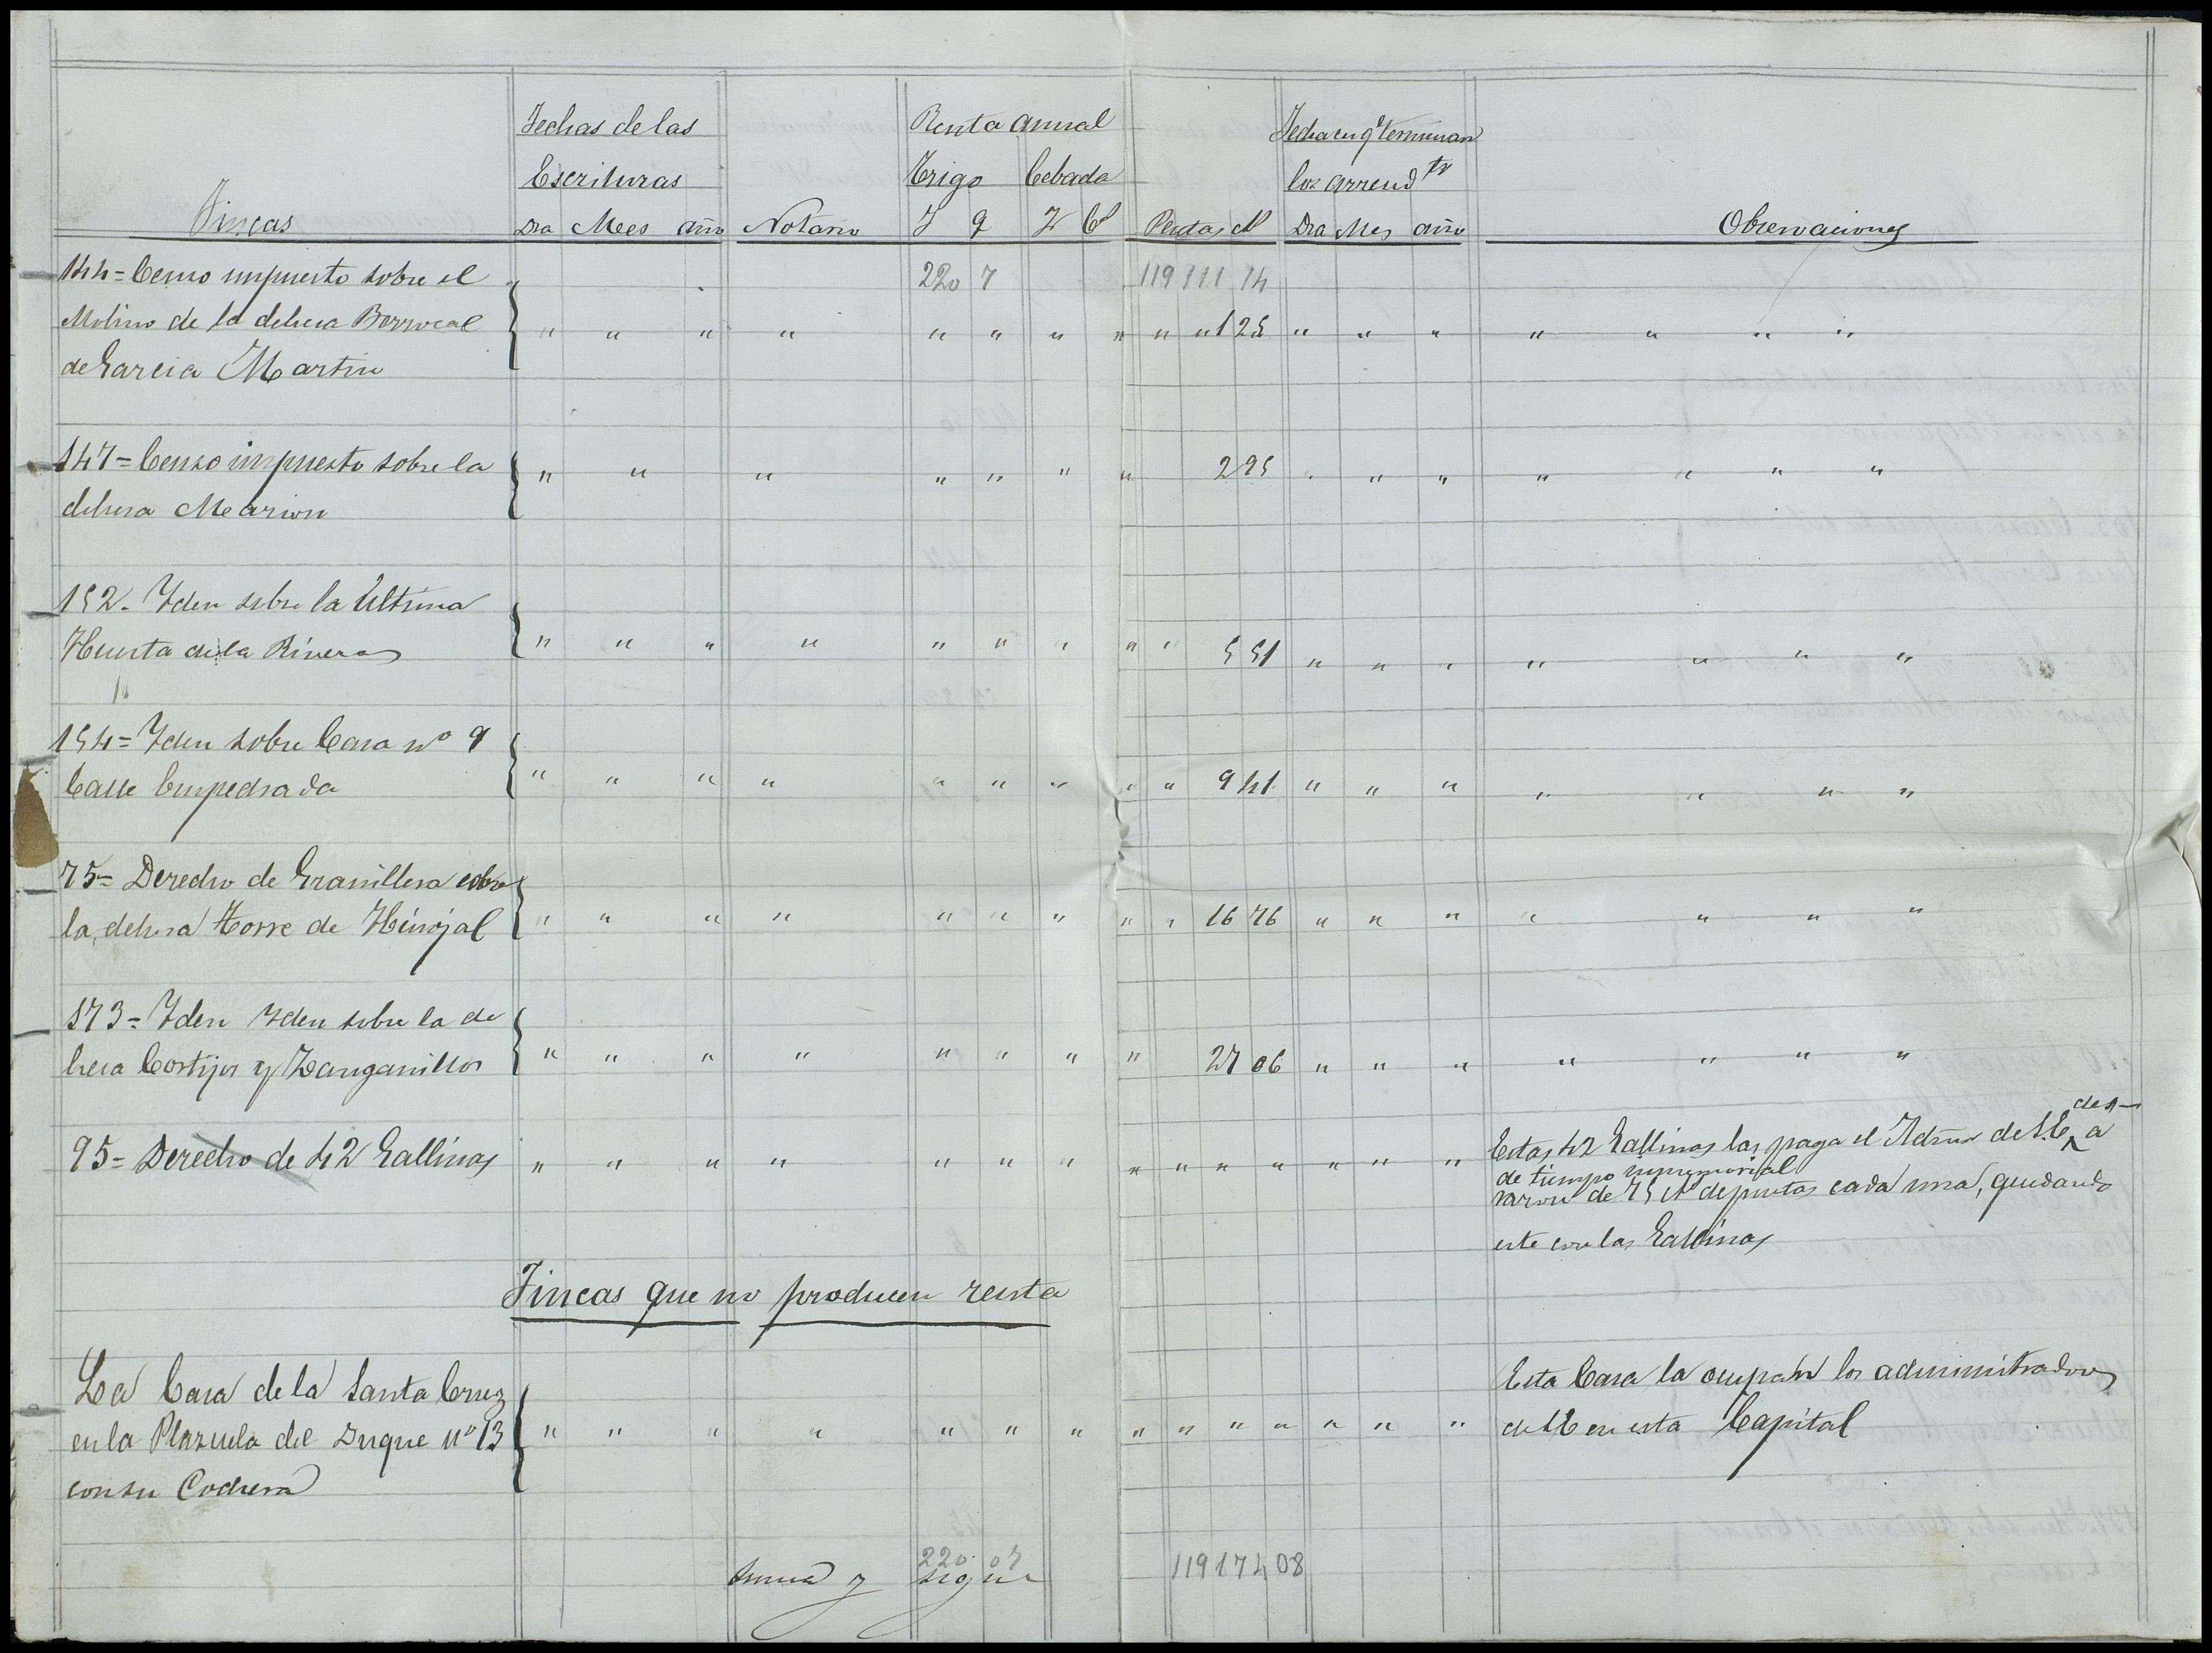 Fechas de las Renta anual Fecha en q.e terminan
Escrituras Trigo Cebada los arrend.tos
Fincas Dia Mees año Notario F q F C.s Pesetas C.s Dia Mes año Observaciones
144= Censo impuesto sobre el 220 7 119 111 74
Molino de la dehesa Berrocal " " " " " " " " " " 1 25 " " " " " " "
de Garcia Martin
147= Censo impuesto sobre la " " " " " " " 2 95 " " " " " " "
dehesa Mearion
152- Yden sobre la Ultima
Huerta de la Rivera " " " " " " " " " 5 51 " " " " " " "
154= Yden sobre Casa nº 9
Calle Empedrada " " " " " " " " " 9 41 " " " " " " "
75= Derecho de Granillera sobre
la dehesa Torre de Hinojal " " " " " " " " " 16 76 " " " " " " "
173= Yden Yden sobre la de
hesa Cortijos y Zanganillos " " " " " " " " 27 06 " " " " " " "
95= Derecho de 42 Gallinas " " " " " " " " " " " " " " Estas 42 Gallinas las paga el Admor de S.E. des- a
de tiempo inmemorial
razon de 75 cs de pesetas cada una, quedando
este con las Gallinas
Fincas que no producen renta
La Casa de la Santa Cruz Esta Casa la ocupan los administradores
en la Plazuela del Duque nº 13 " " " " " " " " " " " " " " de S.E. en esta Capital
con su Cochera
220 07 119 174 08
Suma y sigue